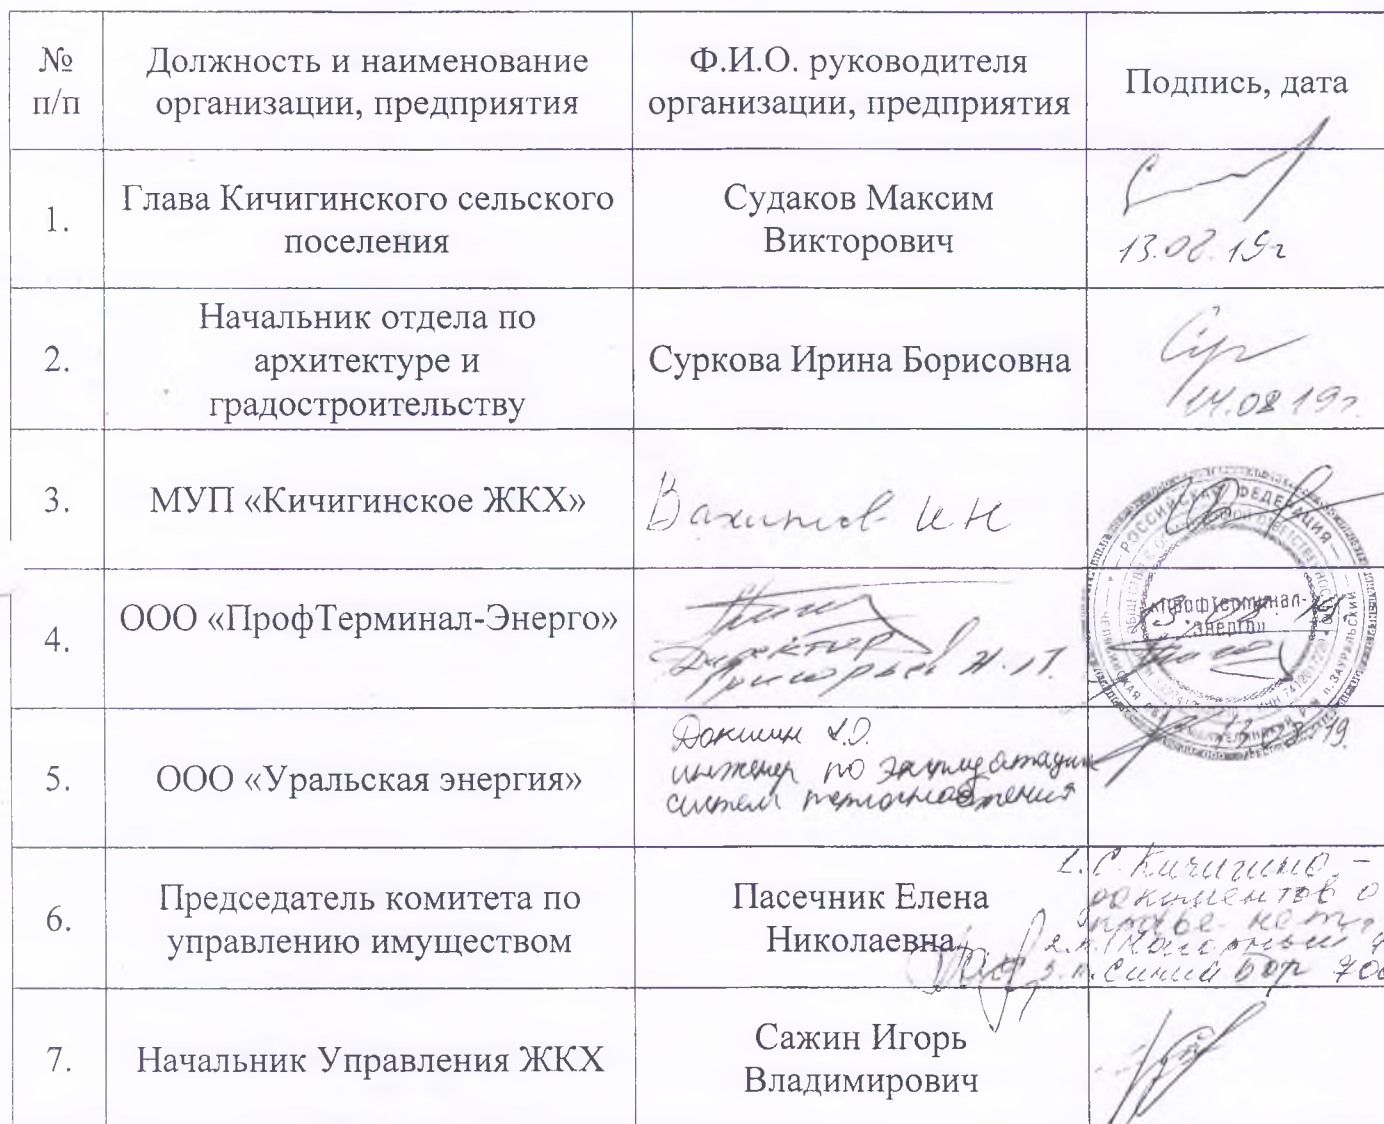 № п/п
Должность и наименование организации, предприятия
Ф.И.О. руководителя организации, предприятия
Подпись, дата
1.
Глава Кичигинского сельского
поселения
Судаков Максим
Викторович
13.08.19г
2.
Начальник отдела по
архитектуре и
градостроительству
Суркова Ирина Борисовна
14.08.19г.
3.
МУП «Кичигинское ЖКХ»
Вахитов И.Н
РОССИЙСКАЯ ФЕДЕРАЦИЯ
4.
ООО «ПрофТерминал-Энерго»
Директор
Григорьев Н.П.
«Профтерминал-
Энерго»
13.08.19.
5.
ООО «Уральская энергия»
инженер по эксплуатации
систем теплоснабжения
6.
Председатель комитета по
управлению имуществом
Пасечник Елена
Николаевна
1. С. Кичигино -
документов о
праве нет.
2. п. Нагорный
3. п. Синий бор
7.
Начальник Управления ЖКХ
Сажин Игорь
Владимирович